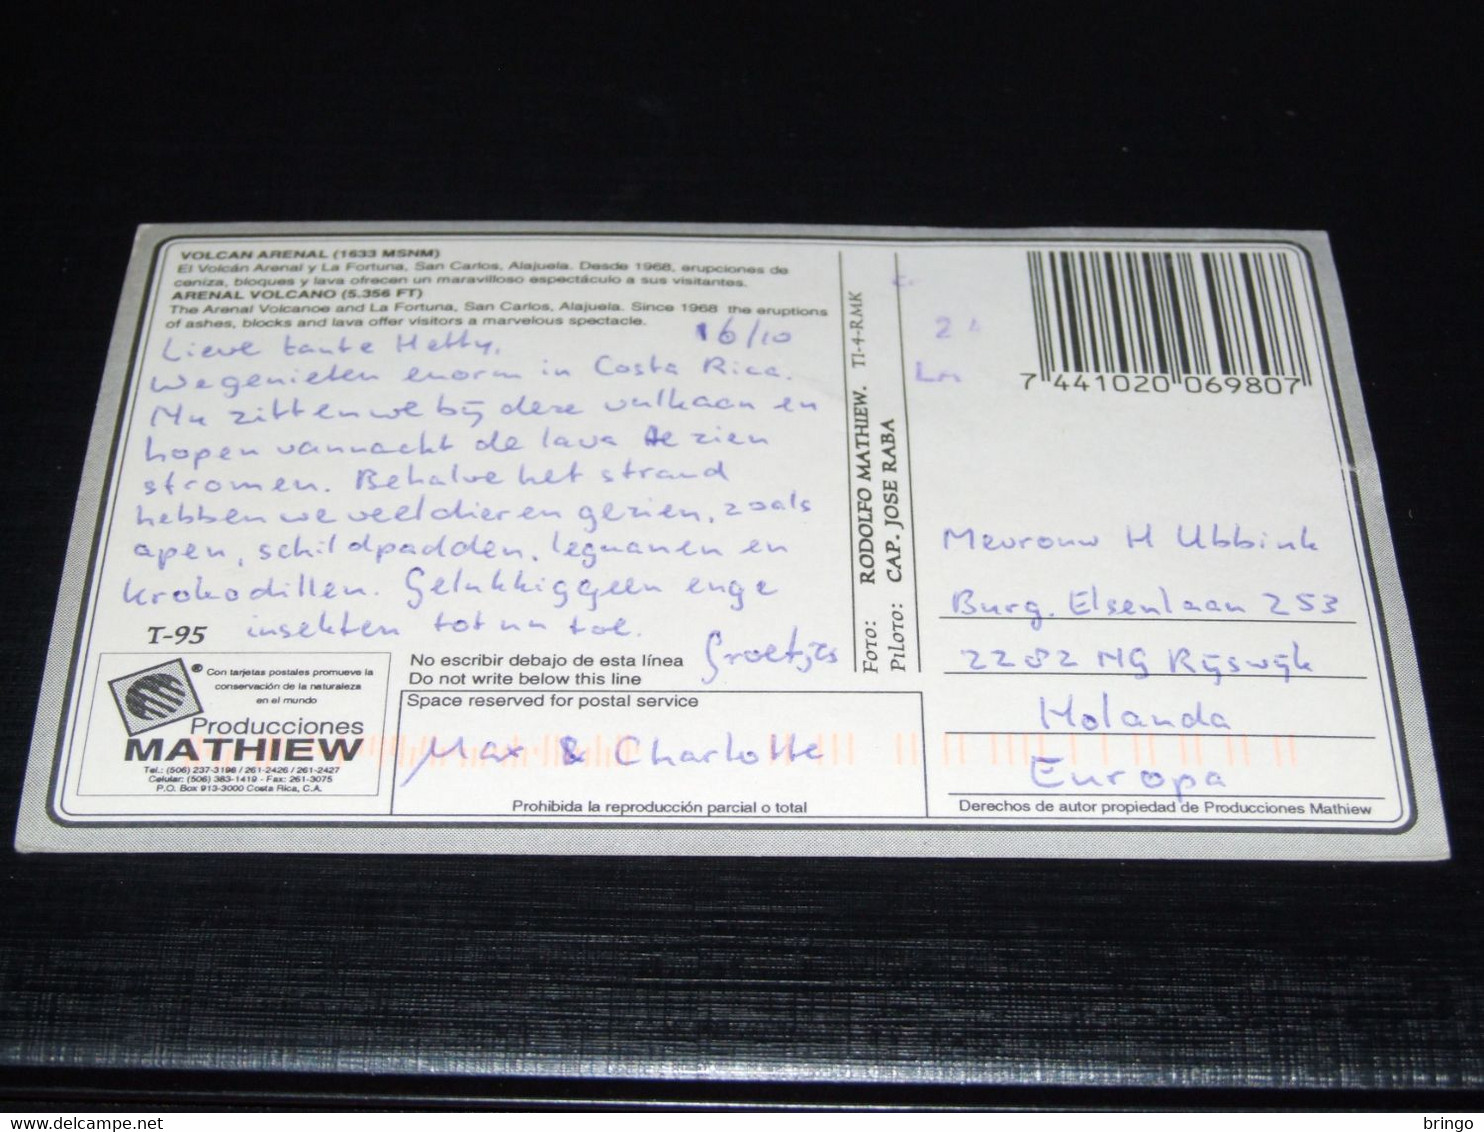 VOLCAN ARENAL (1633 MSNM)
El Volcán Arenal y La Fortuna, San Carlos, Alajuela. Desde 1968, erupciones de
ceniza, bloques y lava ofrecen un maravilloso espectáculo a sus visitantes.
ARENAL VOLCANO (5.356 FT)
The Arenal Volcanoe and La Fortuna, San Carlos, Alajuela. Since 1968 the eruptions
of ashes, blocks and lava offer visitors a marvelous spectacle.
16/10
Lieve tante Hetty,
We genieten enorm in Costa Rica.
Nu zitten we bij deze vulkaan en
hopen vannacht de lava te zien
stromen. Behalve het strand
hebben we veel dieren gezien, zoals
apen, schildpadden, leguanen en
krokodillen. Gelukkig geen enge
insekten tot nu toe.
Groetjes
Max & Charlotte
T-95
Con tarjetas postales promueve la
conservación de la naturaleza
en el mundo
®
Producciones
MATHIEW
Tel.: (506) 237-3198 / 261-2426 / 261-2427
Celular: (506) 383-1419 - Fax: 261-3075
P.O. Box 913-3000 Costa Rica, C.A.
No escribir debajo de esta línea
Do not write below this line
Space reserved for postal service
Prohibida la reproducción parcial o total
Foto: RODOLFO MATHIEW. TI-4-RMK
Piloto: CAP. JOSE RABA
7 441020 069807
Mevrouw H Ubbink
Burg. Elsenlaan 253
2282 NG Rijswijk
Holanda
Europa
Derechos de autor propiedad de Producciones Mathiew
bringo